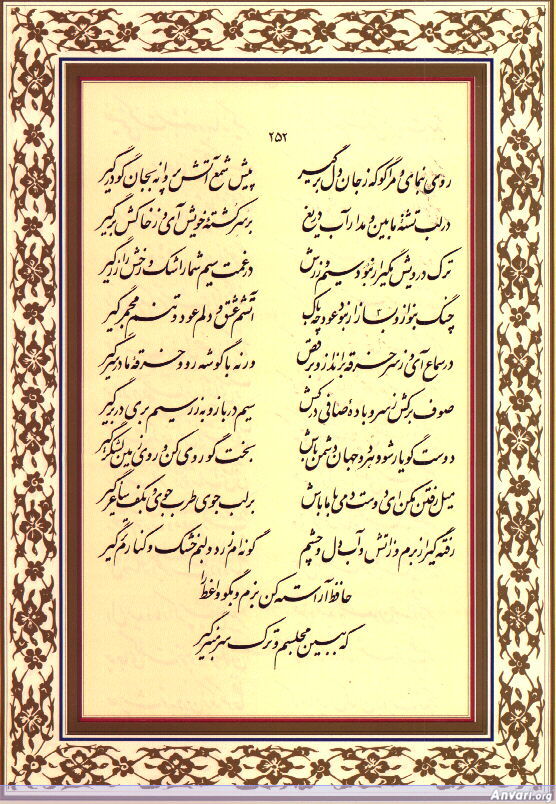 ۲۵۲
روی بنمای و مرا گو که ز جان دل برگیر پیش شمع آتش پروانه بجان گو درگیر
در لب تشنهٔ ما بین و مدار آب دریغ بر سر کشتهٔ خویش آی و ز خاکش برگیر
ترک درویش مگیر ار نبود سیم و زرش در غمت سیم شمار اشک و رخش را زر گیر
چنگ بنواز و بساز ار نبود عود چه باک آتشم عشق و دلم عود و تنم مجمر گیر
در سماع آی و ز سر خرقه برانداز و برقص ورنه با گوشه رو و خرقهٔ ما در سر گیر
صوف برکش ز سر و بادهٔ صافی درکش سیم درباز و بزر سیم بری در بر گیر
دوست گو یار شو و هر دو جهان دشمن باش بخت گو روی کن و روی زمین لشکر گیر
میل رفتن مکن ای دوست دمی با ما باش بر لب جوی طرب جوی و بکف ساغر گیر
رفته گیر از برم وز آتش و آب دل و چشم گونه‌ام زرد و لبم خشک و کنارم تر گیر
حافظ آراسته کن بزم و بگو واعظ را
که ببین مجلسم و ترک سر منبر گیر
Anvari.org